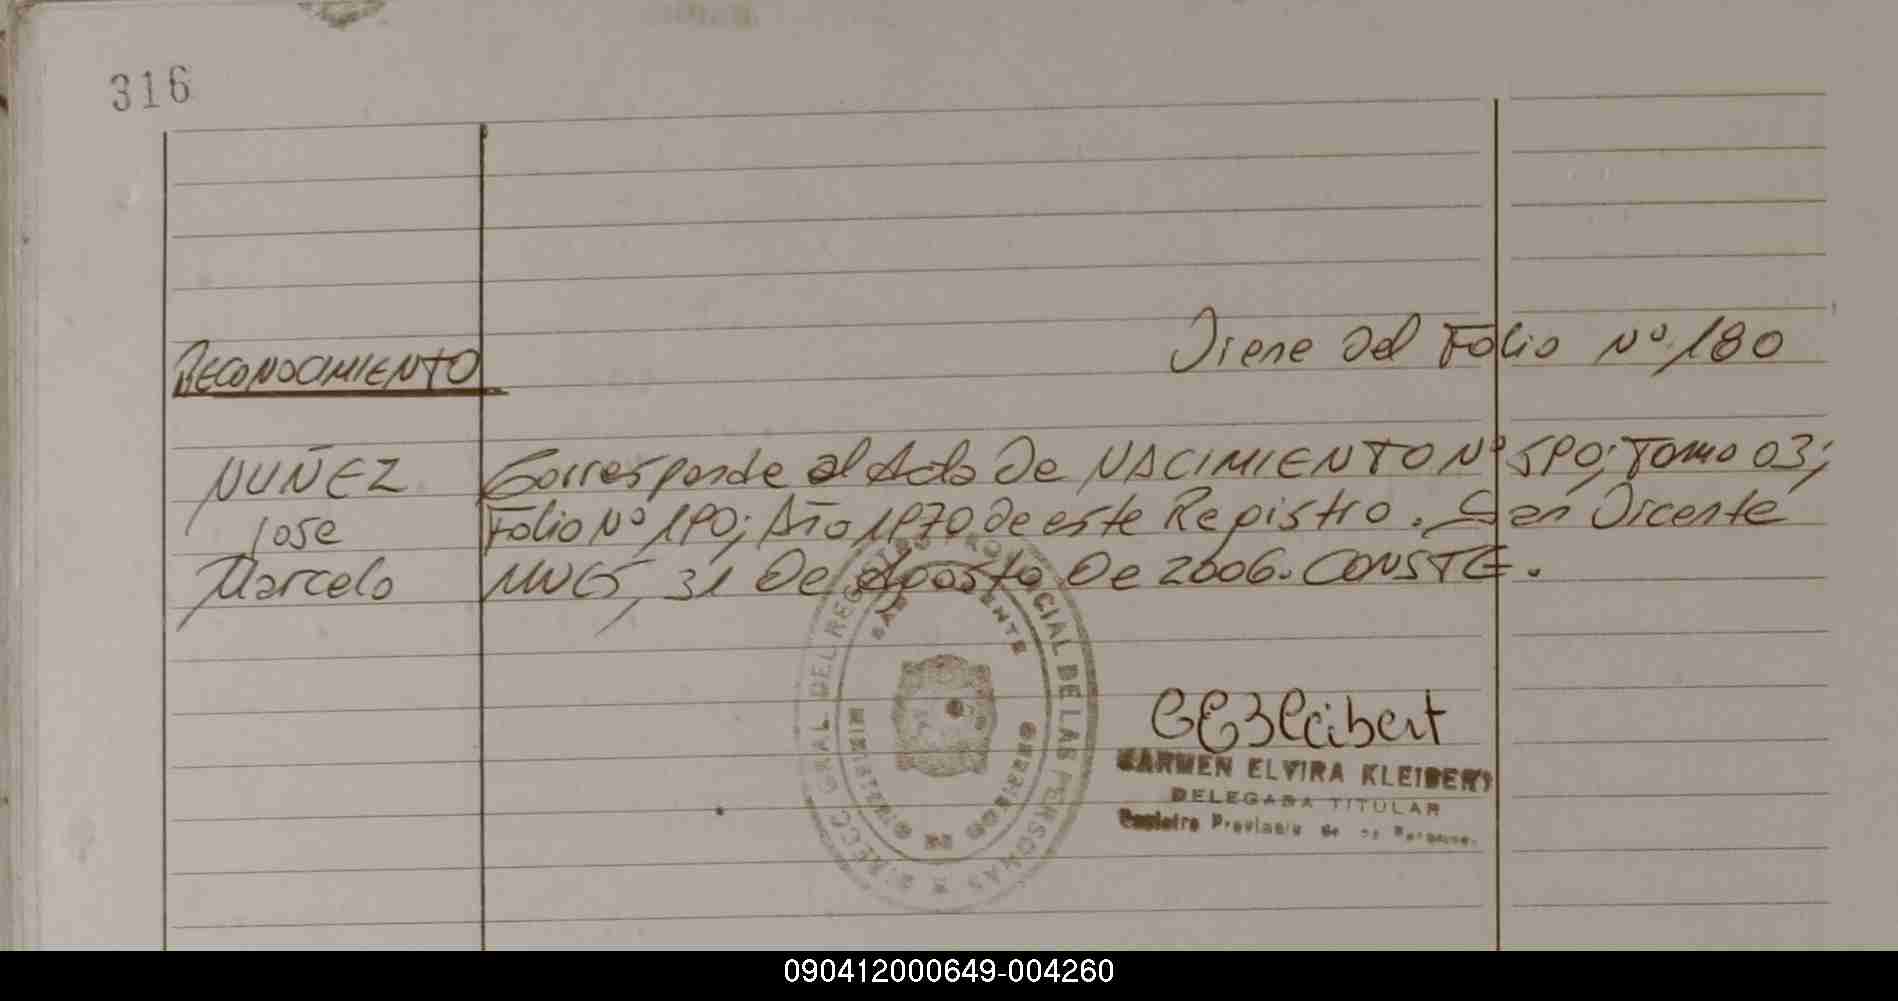 316
Viene del Folio Nº 180
RECONOCIMIENTO
NUÑEZ Corresponde al Acta De NACIMIENTO Nº 590; Tomo 03;
Jose Folio Nº 190; Año 1970 De este Registro. San Vicente
Marcelo MNES, 31 De Agosto De 2006. CONSTE.
DIRECC. GRAL. DEL REGISTRO PROVINCIAL DE LAS PERSONAS
SAN VICENTE
MINISTERIO DE GOBIERNO
CEKleibert
CARMEN ELVIRA KLEIBERT
DELEGADA TITULAR
Registro Provincial de las Personas
090412000649-004260